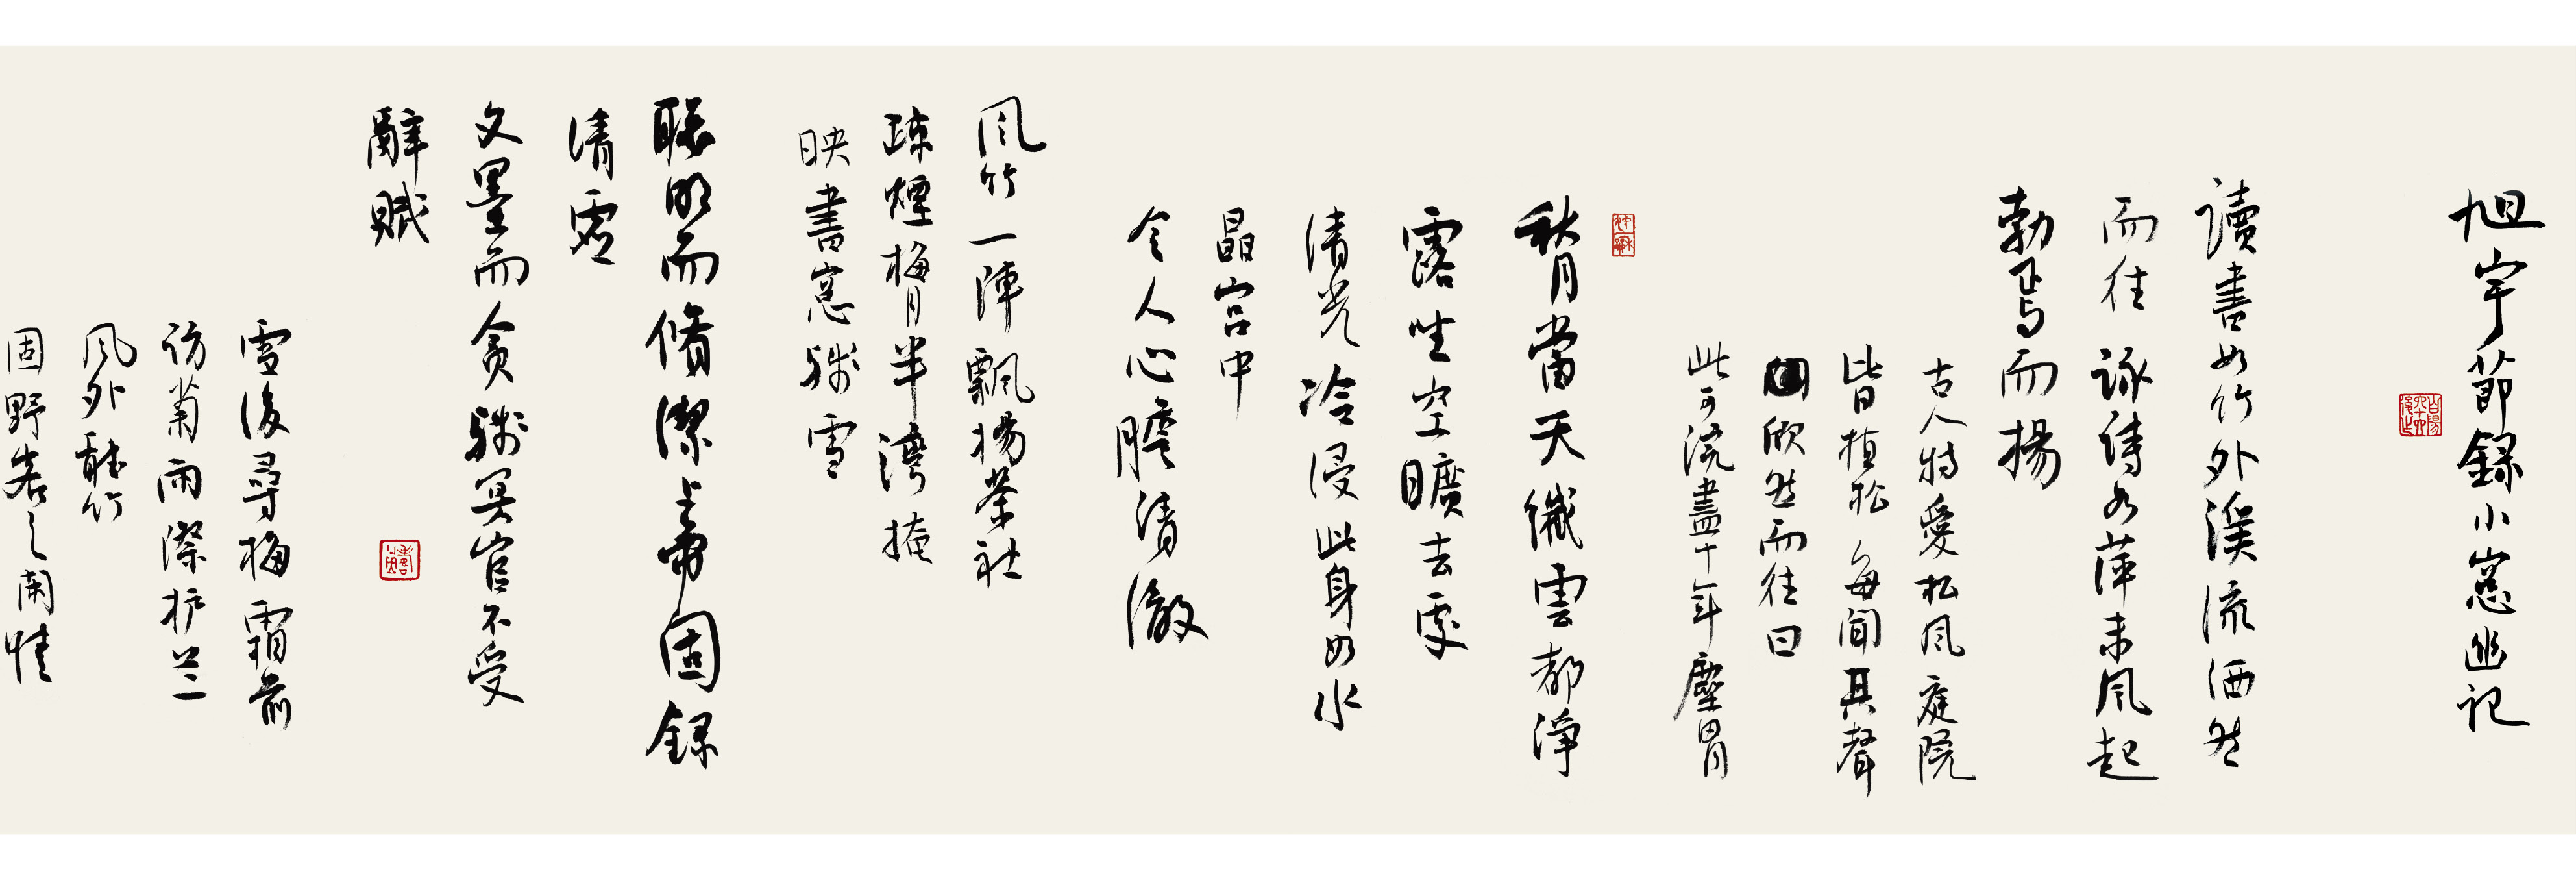 旭宇節録小窓幽记
讀書如竹外溪流洒然
而往詠詩如萍末风起
勃焉而揚
古人特愛松风庭院
皆植松每聞其聲
欣然而往曰
此可浣盡十年塵胃
秋月當天纖雲都淨
露坐空曠去處
清光冷浸此身如水
晶宫中
令人心膽清澈
风竹一陣飄揚茶社
疎煙梅月半灣掩
映書窓殘雪
聪明而脩潔上帝固録
清虚
文墨而贪殘冥官不受
辭賦
雪後尋梅霜前
访菊雨際护兰
风外聽竹
固野客之闲情